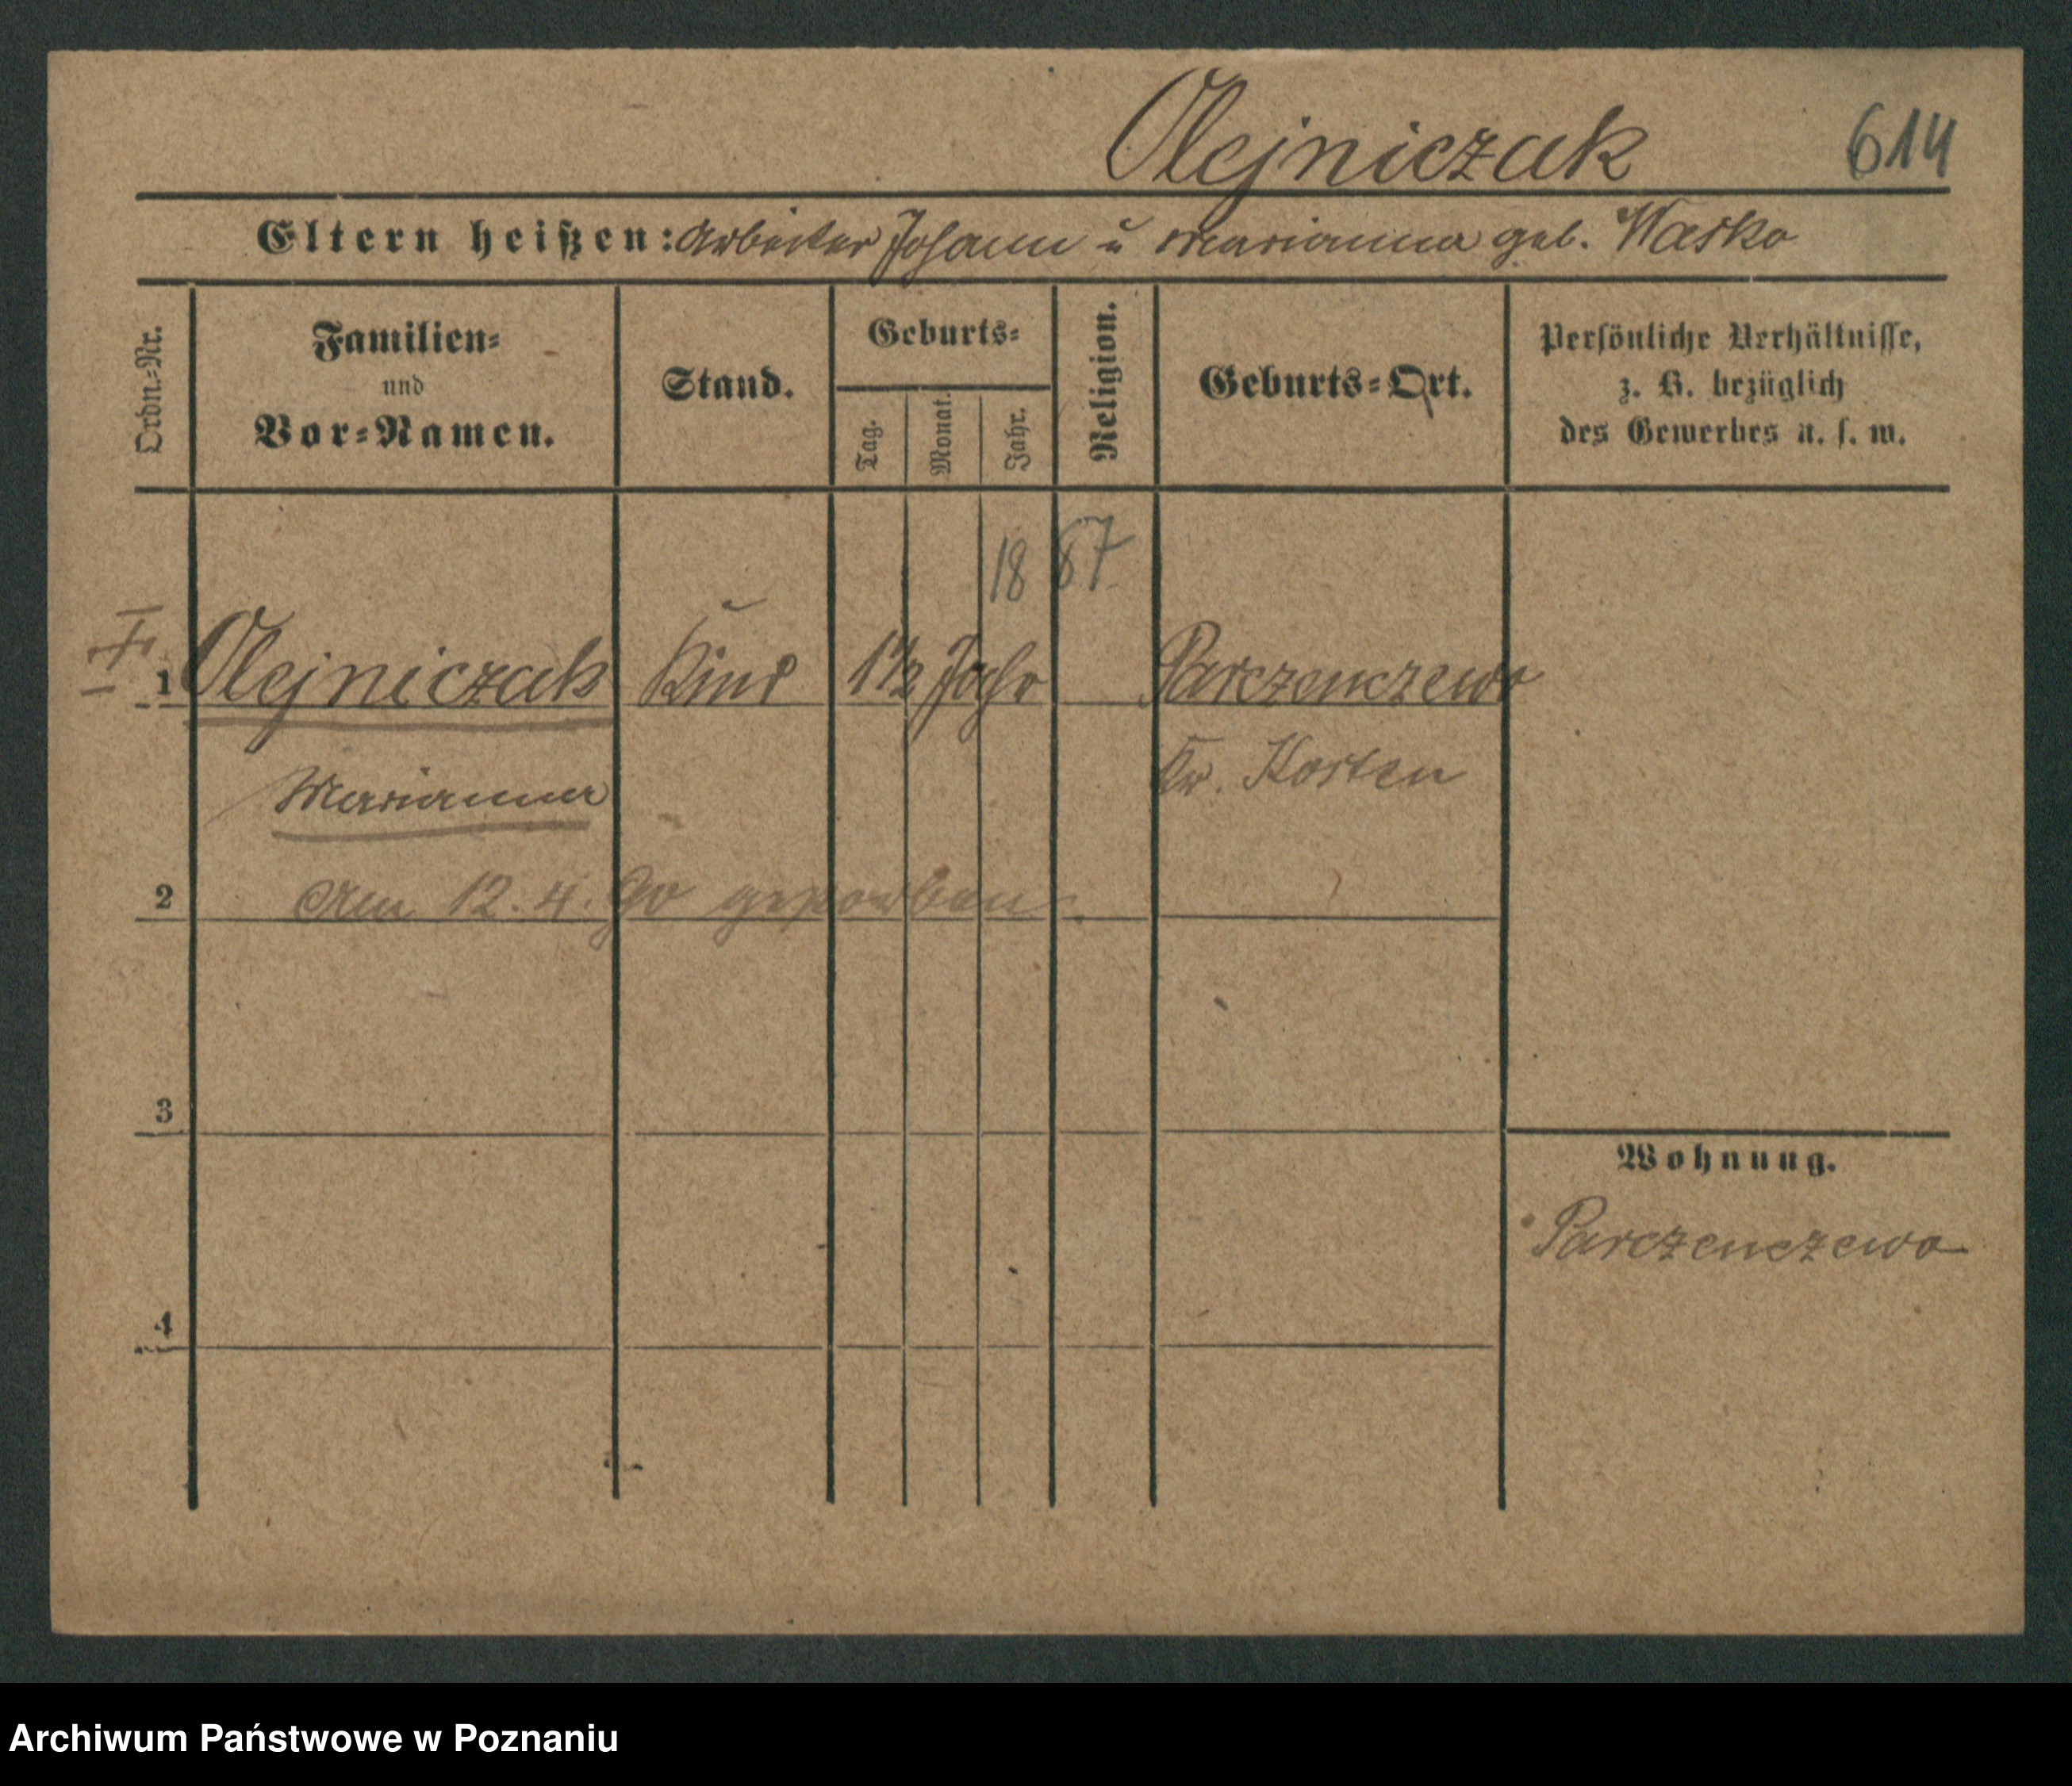 Olejniczak 614
Eltern heißen: Arbeiter Johann u Marianna geb. Wasko
Ordn.-Nr.
Familien-
und
Vor-Namen.
Stand.
Geburts-
Tag.
Monat.
Jahr.
Religion.
Geburts-Ort.
Persönliche Verhältnisse,
z. B. bezüglich
des Gewerbes u. s. w.
1887
1 Olejniczak Kind 1 1/2 Jahr Parczenczewo
Marianna Kr. Kosten
2 Am 12. 4. 90 gestorben.
3
Wohnung.
Parczenczewo
4
Archiwum Państwowe w Poznaniu